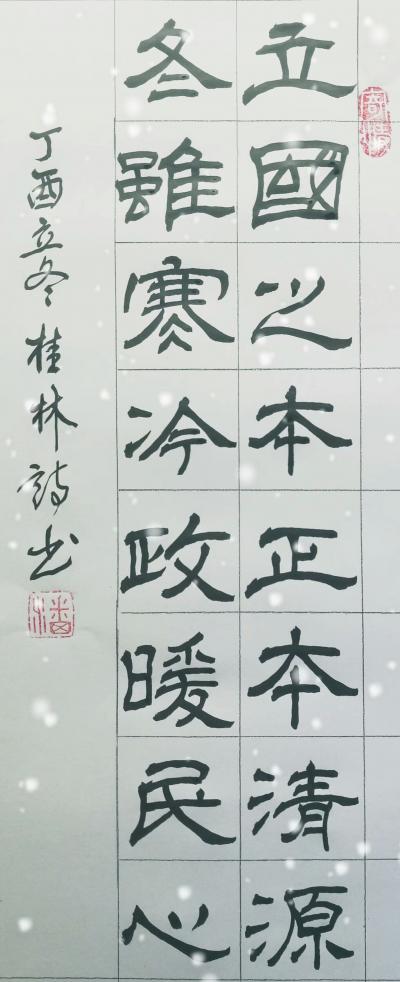 立國之本正本清源
冬雖寒冷政暖民心
丁酉立冬桂林詩书
潘